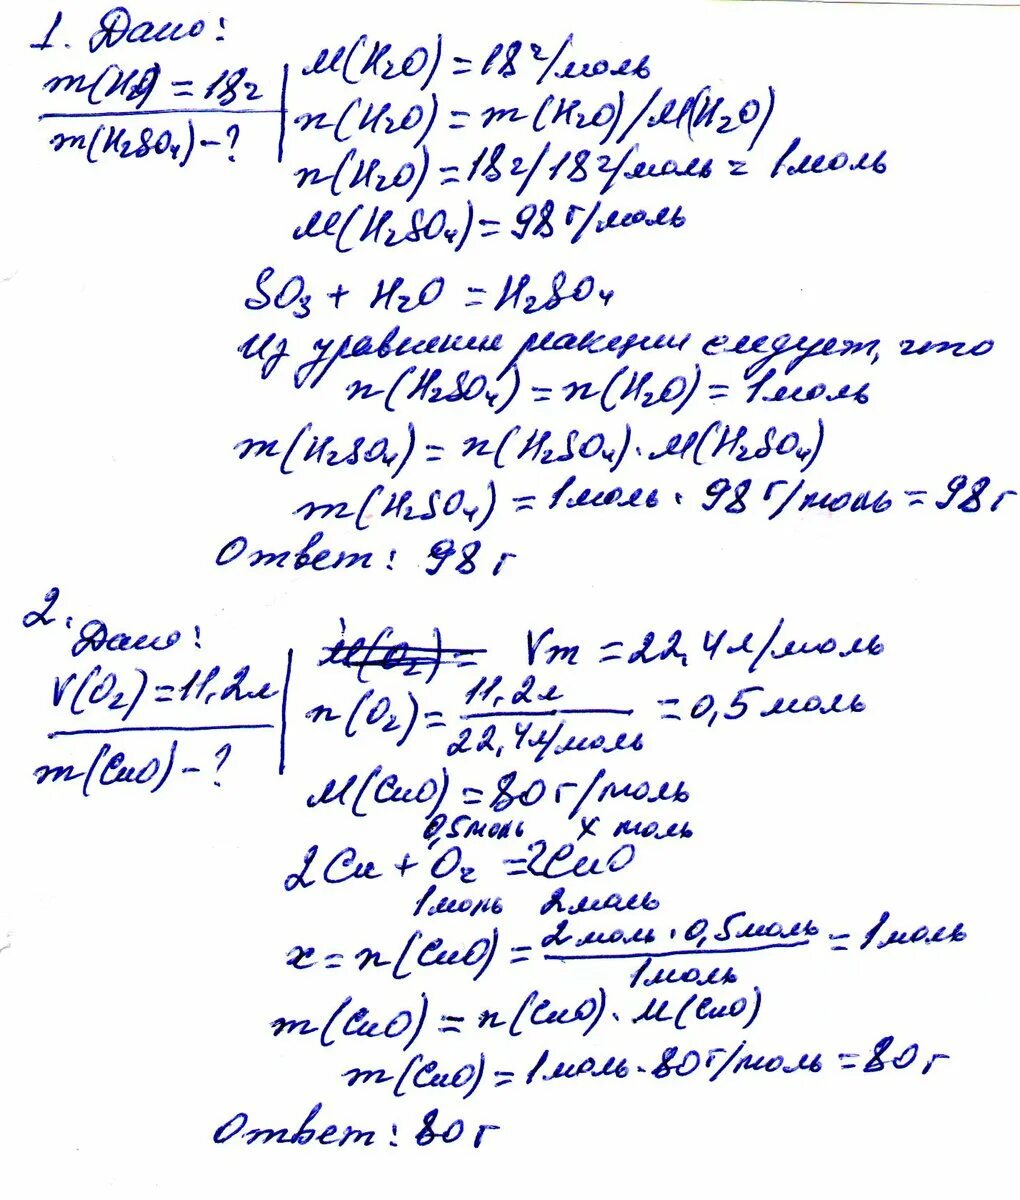 1. Дано:
m(H₂O) = 18г
m(H₂SO₄) - ?
M(H₂O) = 18 г/моль
n(H₂O) = m(H₂O)/M(H₂O)
n(H₂O) = 18г/18г/моль = 1моль
M(H₂SO₄) = 98 г/моль
SO₃ + H₂O = H₂SO₄
Из уравнения реакции следует, что
n(H₂SO₄) = n(H₂O) = 1моль
m(H₂SO₄) = n(H₂SO₄) · M(H₂SO₄)
m(H₂SO₄) = 1моль · 98 г/моль = 98 г
Ответ: 98 г
2.
Дано:
V(O₂) = 11,2л
m(CuO) - ?
M(O₂) = Vm = 22,4л/моль
n(O₂) = 11,2л / 22,4л/моль = 0,5моль
M(CuO) = 80г/моль
0,5моль х моль
2Cu + O₂ = 2CuO
1моль 2моль
x = n(CuO) = 2моль · 0,5моль / 1моль = 1моль
m(CuO) = n(CuO) · M(CuO)
m(CuO) = 1моль · 80г/моль = 80г
Ответ: 80г